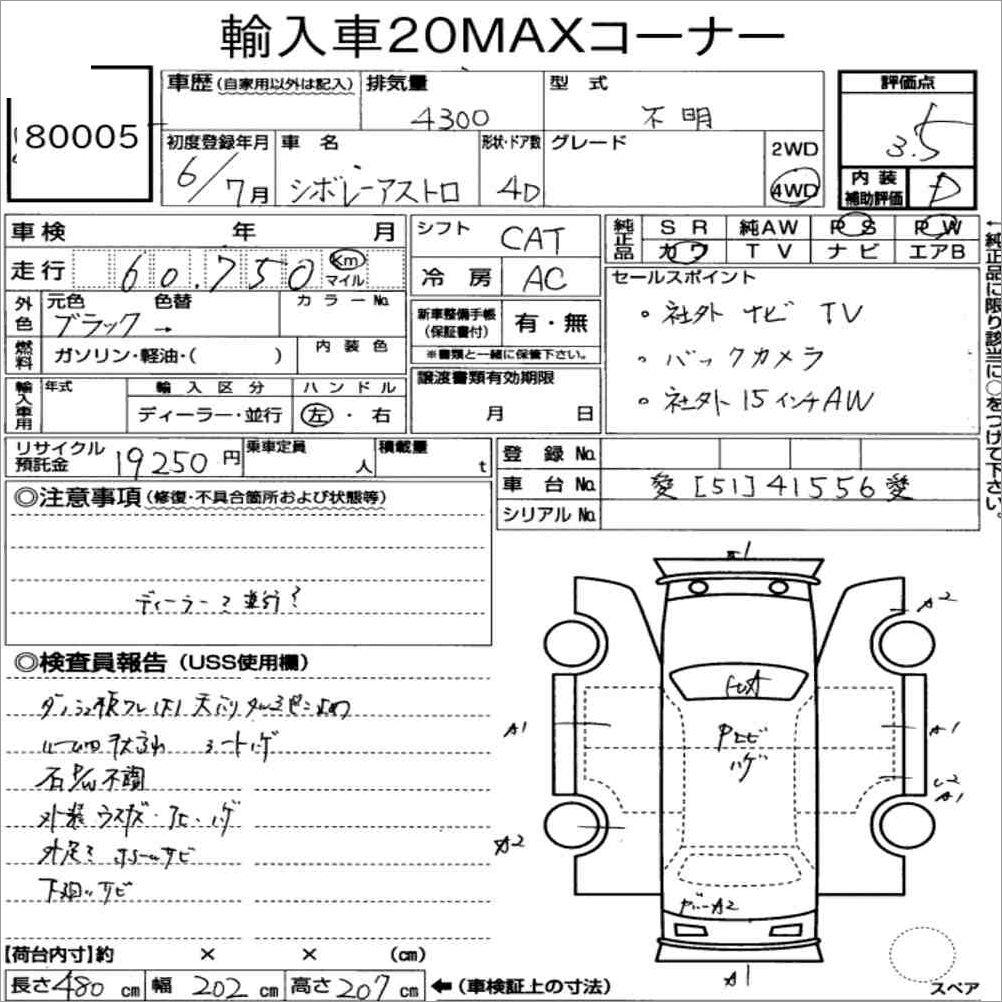 輸入車20MAXコーナー
80005
車歴(自家用以外は記入)
排気量
4300
型 式
不明
評価点
3.5
初度登録年月
6/7月
車 名
シボレーアストロ
形状・ドア数
4D
グレード
2WD
4WD
内装
補助評価
D
車検 年 月
走行 60.750 Km
マイル
シフト
CAT
冷房
AC
純正品
SR 純AW PS PW
カワ TV ナビ エアB
←純正品に限り該当に○をつけて下さい。
外色
元色
ブラック →
色替
カラーNo.
燃料
ガソリン・軽油・( )
内装色
新車整備手帳
(保証書付)
有・無
※書類と一緒に保管下さい。
セールスポイント
・社外 ナビ TV
・バックカメラ
・社外 15インチAW
輸入車用
年式
輸入区分
ディーラー・並行
ハンドル
左・右
譲渡書類有効期限
月 日
リサイクル
預託金
19250円
乗車定員
人
積載量
t
登録No.
車台No.
愛[51]41556愛
シリアルNo.
◎注意事項(修復・不具合箇所および状態等)
ディーラー? 並行?
◎検査員報告(USS使用欄)
シートハゲ
右P/W不調
外装ウスキズ・
下廻サビ
A1
A2
A1
A1
A1
A2
A2
A1
ハゲ
スペア
【荷台内寸】約 × × (cm)
長さ480cm 幅202cm 高さ207cm ←(車検証上の寸法)